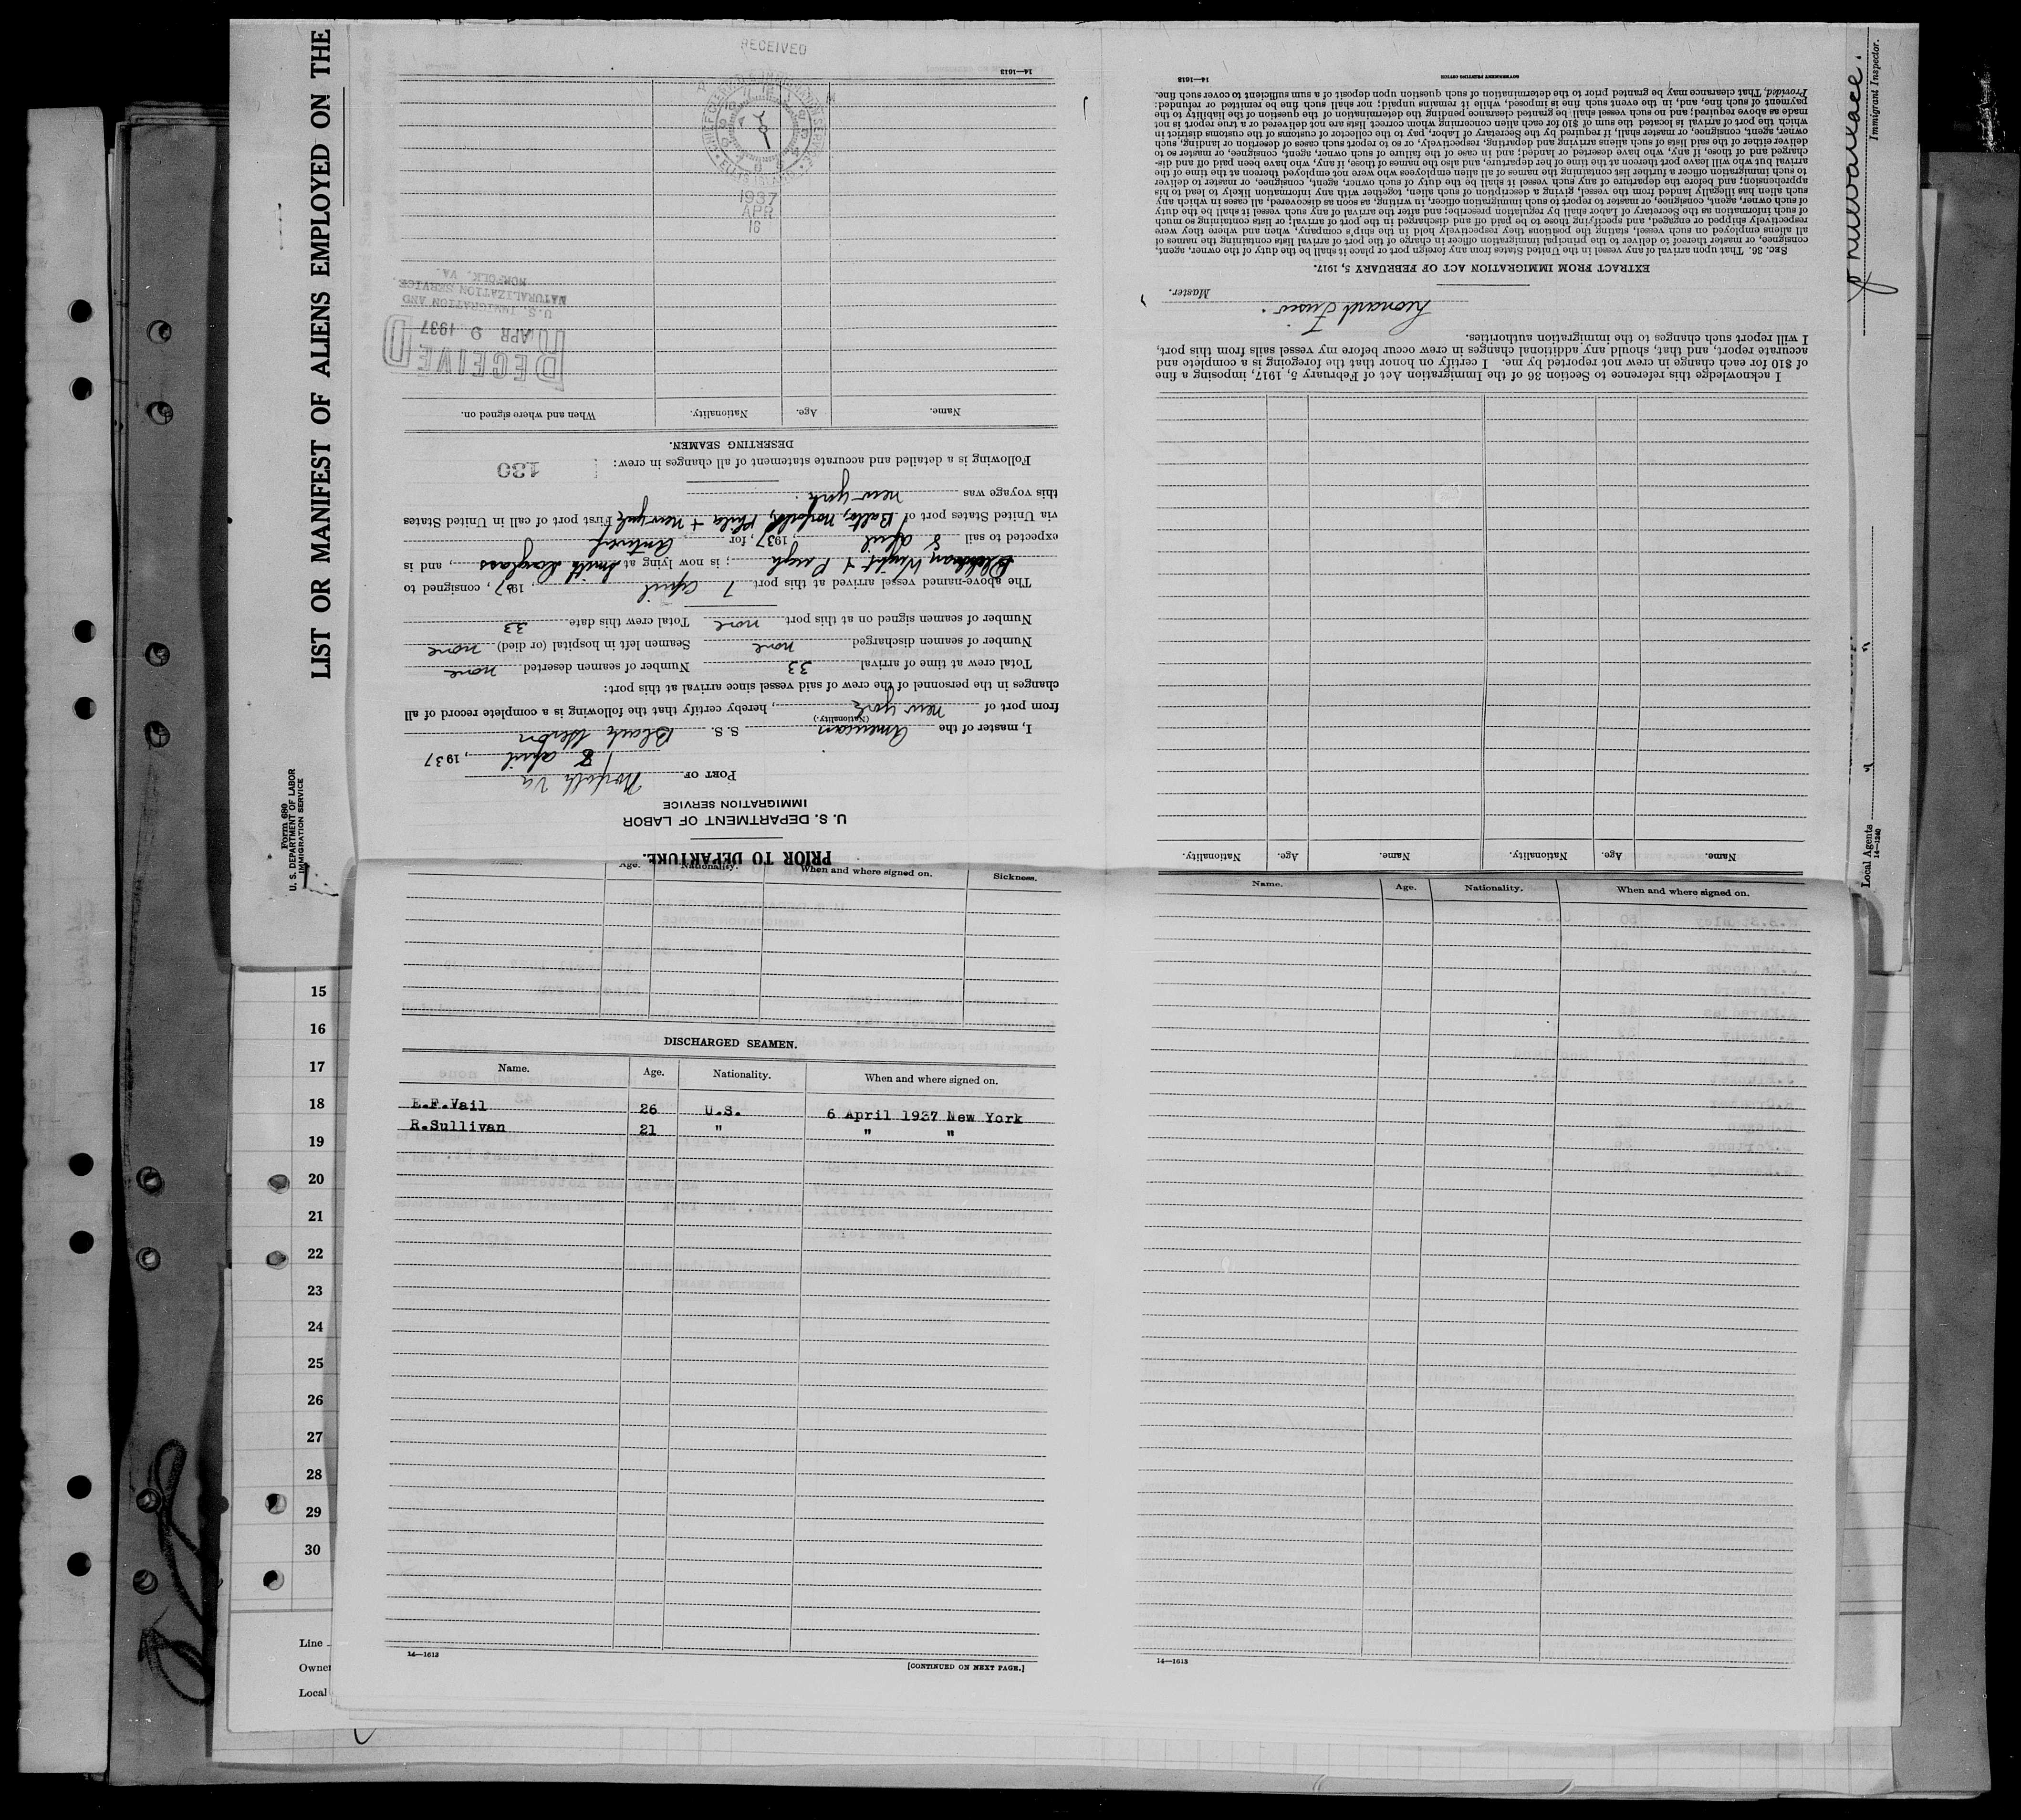 LIST OR MANIFEST OF ALIENS EMPLOYED ON THE
Form 680
U. S. DEPARTMENT OF LABOR
IMMIGRATION SERVICE
PRIOR TO DEPARTURE.
U. S. DEPARTMENT OF LABOR
IMMIGRATION SERVICE
PORT OF Norfolk Va
8 april, 1937
I, master of the American S. S. Black Heron
(Nationality.)
from port of new york, hereby certify that the following is a complete record of all
changes in the personnel of the crew of said vessel since arrival at this port:
Total crew at time of arrival 33 Number of seamen deserted none
Number of seamen discharged none Seamen left in hospital (or died) none
Number of seamen signed on at this port none Total crew this date 33
The above-named vessel arrived at this port 7 april, 1937, consigned to
Wright & Pugh; is now lying at Smith Douglass, and is
expected to sail 8 april, 1937, for Antwerp
via United States port of Balto, Norfolk, Phila + new york First port of call in United States
this voyage was new york.
Following is a detailed and accurate statement of all changes in crew:
130
DESERTING SEAMEN.
Name. Age. Nationality. When and where signed on.
RECEIVED
APR 9 1937
U.S. IMMIGRATION AND
NATURALIZATION SERVICE.
NORFOLK, VA.
14—1613
RECEIVED
1937
APR
16
ELLIS ISLAND
Name. Age. Nationality. Name. Age. Nationality.
I acknowledge this reference to Section 36 of the Immigration Act of February 5, 1917, imposing a fine
of $10 for each change in crew not reported by me. I certify on honor that the foregoing is a complete and
accurate report, and that, should any additional changes in crew occur before my vessel sails from this port,
I will report such changes to the immigration authorities.
Leonard
Master.
EXTRACT FROM IMMIGRATION ACT OF FEBRUARY 5, 1917.
SEC. 36. That upon arrival of any vessel in the United States from any foreign port or place it shall be the duty of the owner, agent,
consignee, or master thereof to deliver to the principal immigration officer in charge of the port of arrival lists containing the names of
all aliens employed on such vessel, stating the positions they respectively hold in the ship's company, when and where they were
respectively shipped or engaged, and specifying those to be paid off and discharged in the port of arrival; or lists containing so much
of such information as the Secretary of Labor shall by regulation prescribe; and after the arrival of any such vessel it shall be the duty
of such owner, agent, consignee, or master to report to such immigration officer, in writing, as soon as discovered, all cases in which any
such alien has illegally landed from the vessel, giving a description of such alien, together with any information likely to lead to his
apprehension; and before the departure of any such vessel it shall be the duty of such owner, agent, consignee, or master to deliver
to such immigration officer a further list containing the names of all alien employees who were not employed thereon at the time of the
arrival but who will leave port thereon at the time of her departure, and also the names of those, if any, who have been paid off and dis-
charged and of those, if any, who have deserted or landed; and in case of the failure of such owner, agent, consignee, or master so to
deliver either of the said lists of such aliens arriving and departing, respectively, or so to report such cases of desertion or landing, such
owner, agent, consignee, or master shall, if required by the Secretary of Labor, pay to the collector of customs of the customs district in
which the port of arrival is located the sum of $10 for each alien concerning whom correct lists are not delivered or a true report is not
made as above required; and no such vessel shall be granted clearance pending the determination of the question of the liability to the
payment of such fine, and, in the event such fine is imposed, while it remains unpaid; nor shall such fine be remitted or refunded:
Provided, That clearance may be granted prior to the determination of such question upon deposit of a sum sufficient to cover such fine.
14—1613
GOVERNMENT PRINTING OFFICE
Immigrant Inspector.
Local Agents
14—1240
Age. Nationality. When and where signed on. Sickness.
DISCHARGED SEAMEN.
Name. Age. Nationality. When and where signed on.
E.F.Vail 26 U.S. 6 April 1937 New York
R.Sullivan 21 " " "
14—1613
[CONTINUED ON NEXT PAGE.]
Name. Age. Nationality. When and where signed on.
14—1613
15
16
17
18
19
20
21
22
23
24
25
26
27
28
29
30
Line
Owner
Local